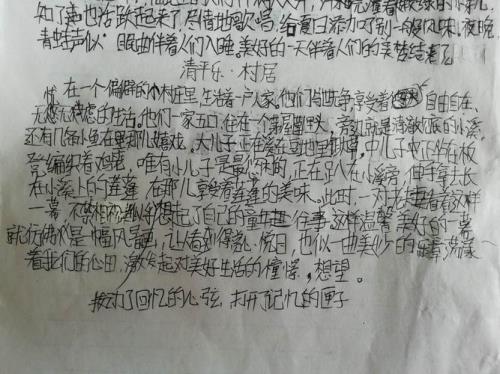 知了声也活跃起来了，尽情地唱歌，给夏日添加了别一般风味。夜晚，
青蛙声似眠曲伴着人们入睡。美好的一天伴着人们的美梦结束了
清平乐·村居
在一个偏僻的小村庄里，生活着一户人家。他们与世无争享受着自由自在、
无忧无虑的生活。他们一家五口住在一个茅屋里头，旁边就是清澈见底的小溪，
还有几条小鱼在里面嬉戏。大儿子正在豆地里锄草，中儿子也正坐在板
凳编织着鸡笼，唯有小儿子是最休闲的，正在趴在小溪旁，伸手拿生长
在小溪上的莲蓬，在那儿享受着莲蓬的美味。此时，一对老夫妻看着这样
一幕，不禁想起了自己的童年往事。这样温馨美好的一幕
就仿佛是一幅风景画，让人看到得赏心悦目，也似一曲美妙的乐章，荡漾
着我们的心田，激发起对美好生活的憧憬，想望。
拨动了回忆的心弦，打开了记忆的匣子